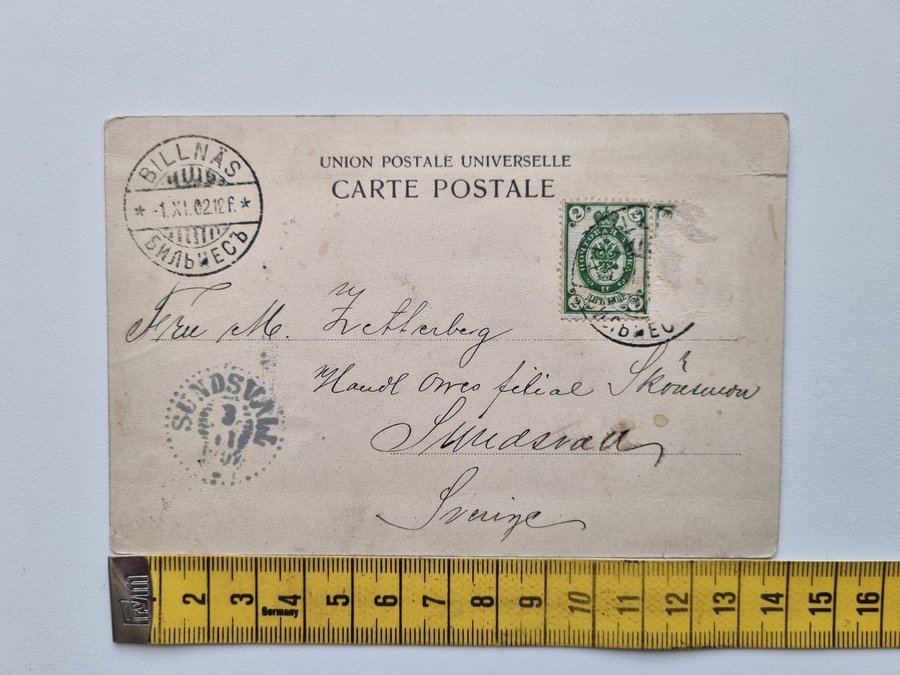 UNION POSTALE UNIVERSELLE
CARTE POSTALE
BILLNÄS
* -1.XI.02.12 F. *
БИЛЬНЕСЪ
2 2
ПОЧТОВАЯ МАРКА
ДВѢ КОП.
2 2
Fru M. Zetterberg
Handl filial Skönsmon
Sundsvall
Sverige
SUNDSVALL
3
11
2 3 4 5 6 7 8 9 10 11 12 13 14 15 16
Germany